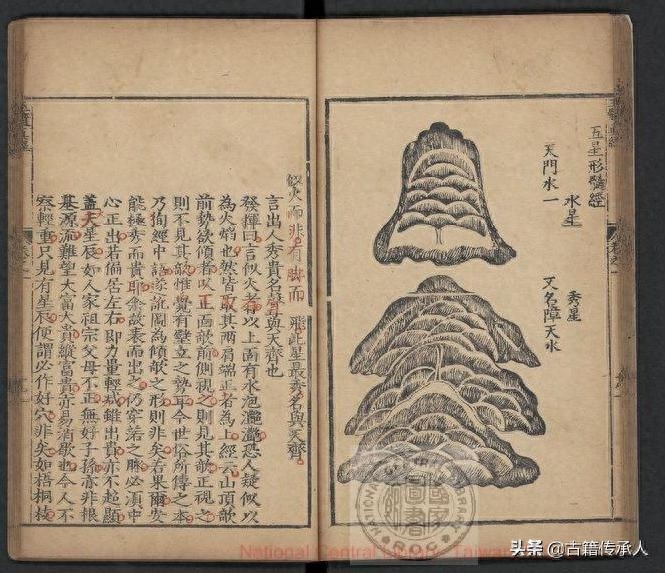 五星形髓經
水星
天門水一
秀星
又名障天水
似火而非有脚而 飛此星最秀名與天齊
言出人秀貴名聲與天齊也
發揮曰言似火者以上面有水泡灎灎恐人疑似以
為火焰也然皆取其兩肩端正者為上經云山頂欹
前勢欲傾者以正面欹前側視之則見其欹正視之
則不見其欹惟覺有壁立之勢耳今世俗所傳之本
乃徇經中語遂訛圖為傾欹之形則非矣若果爾安
能極秀而貴耶余故表而出之仍穿落之脉必須中
心正出若偏居左右即力量輕減雖出貴亦不超顯
蓋天星辰如人家祖宗父母不正無好子孫亦非根
基源流難望大富大貴縱富貴亦易消歇也今人不
察輕重只見有星辰便謂必作好穴非矣如梧桐枝
National Central Library, Taiwan
头条 @古籍传承人